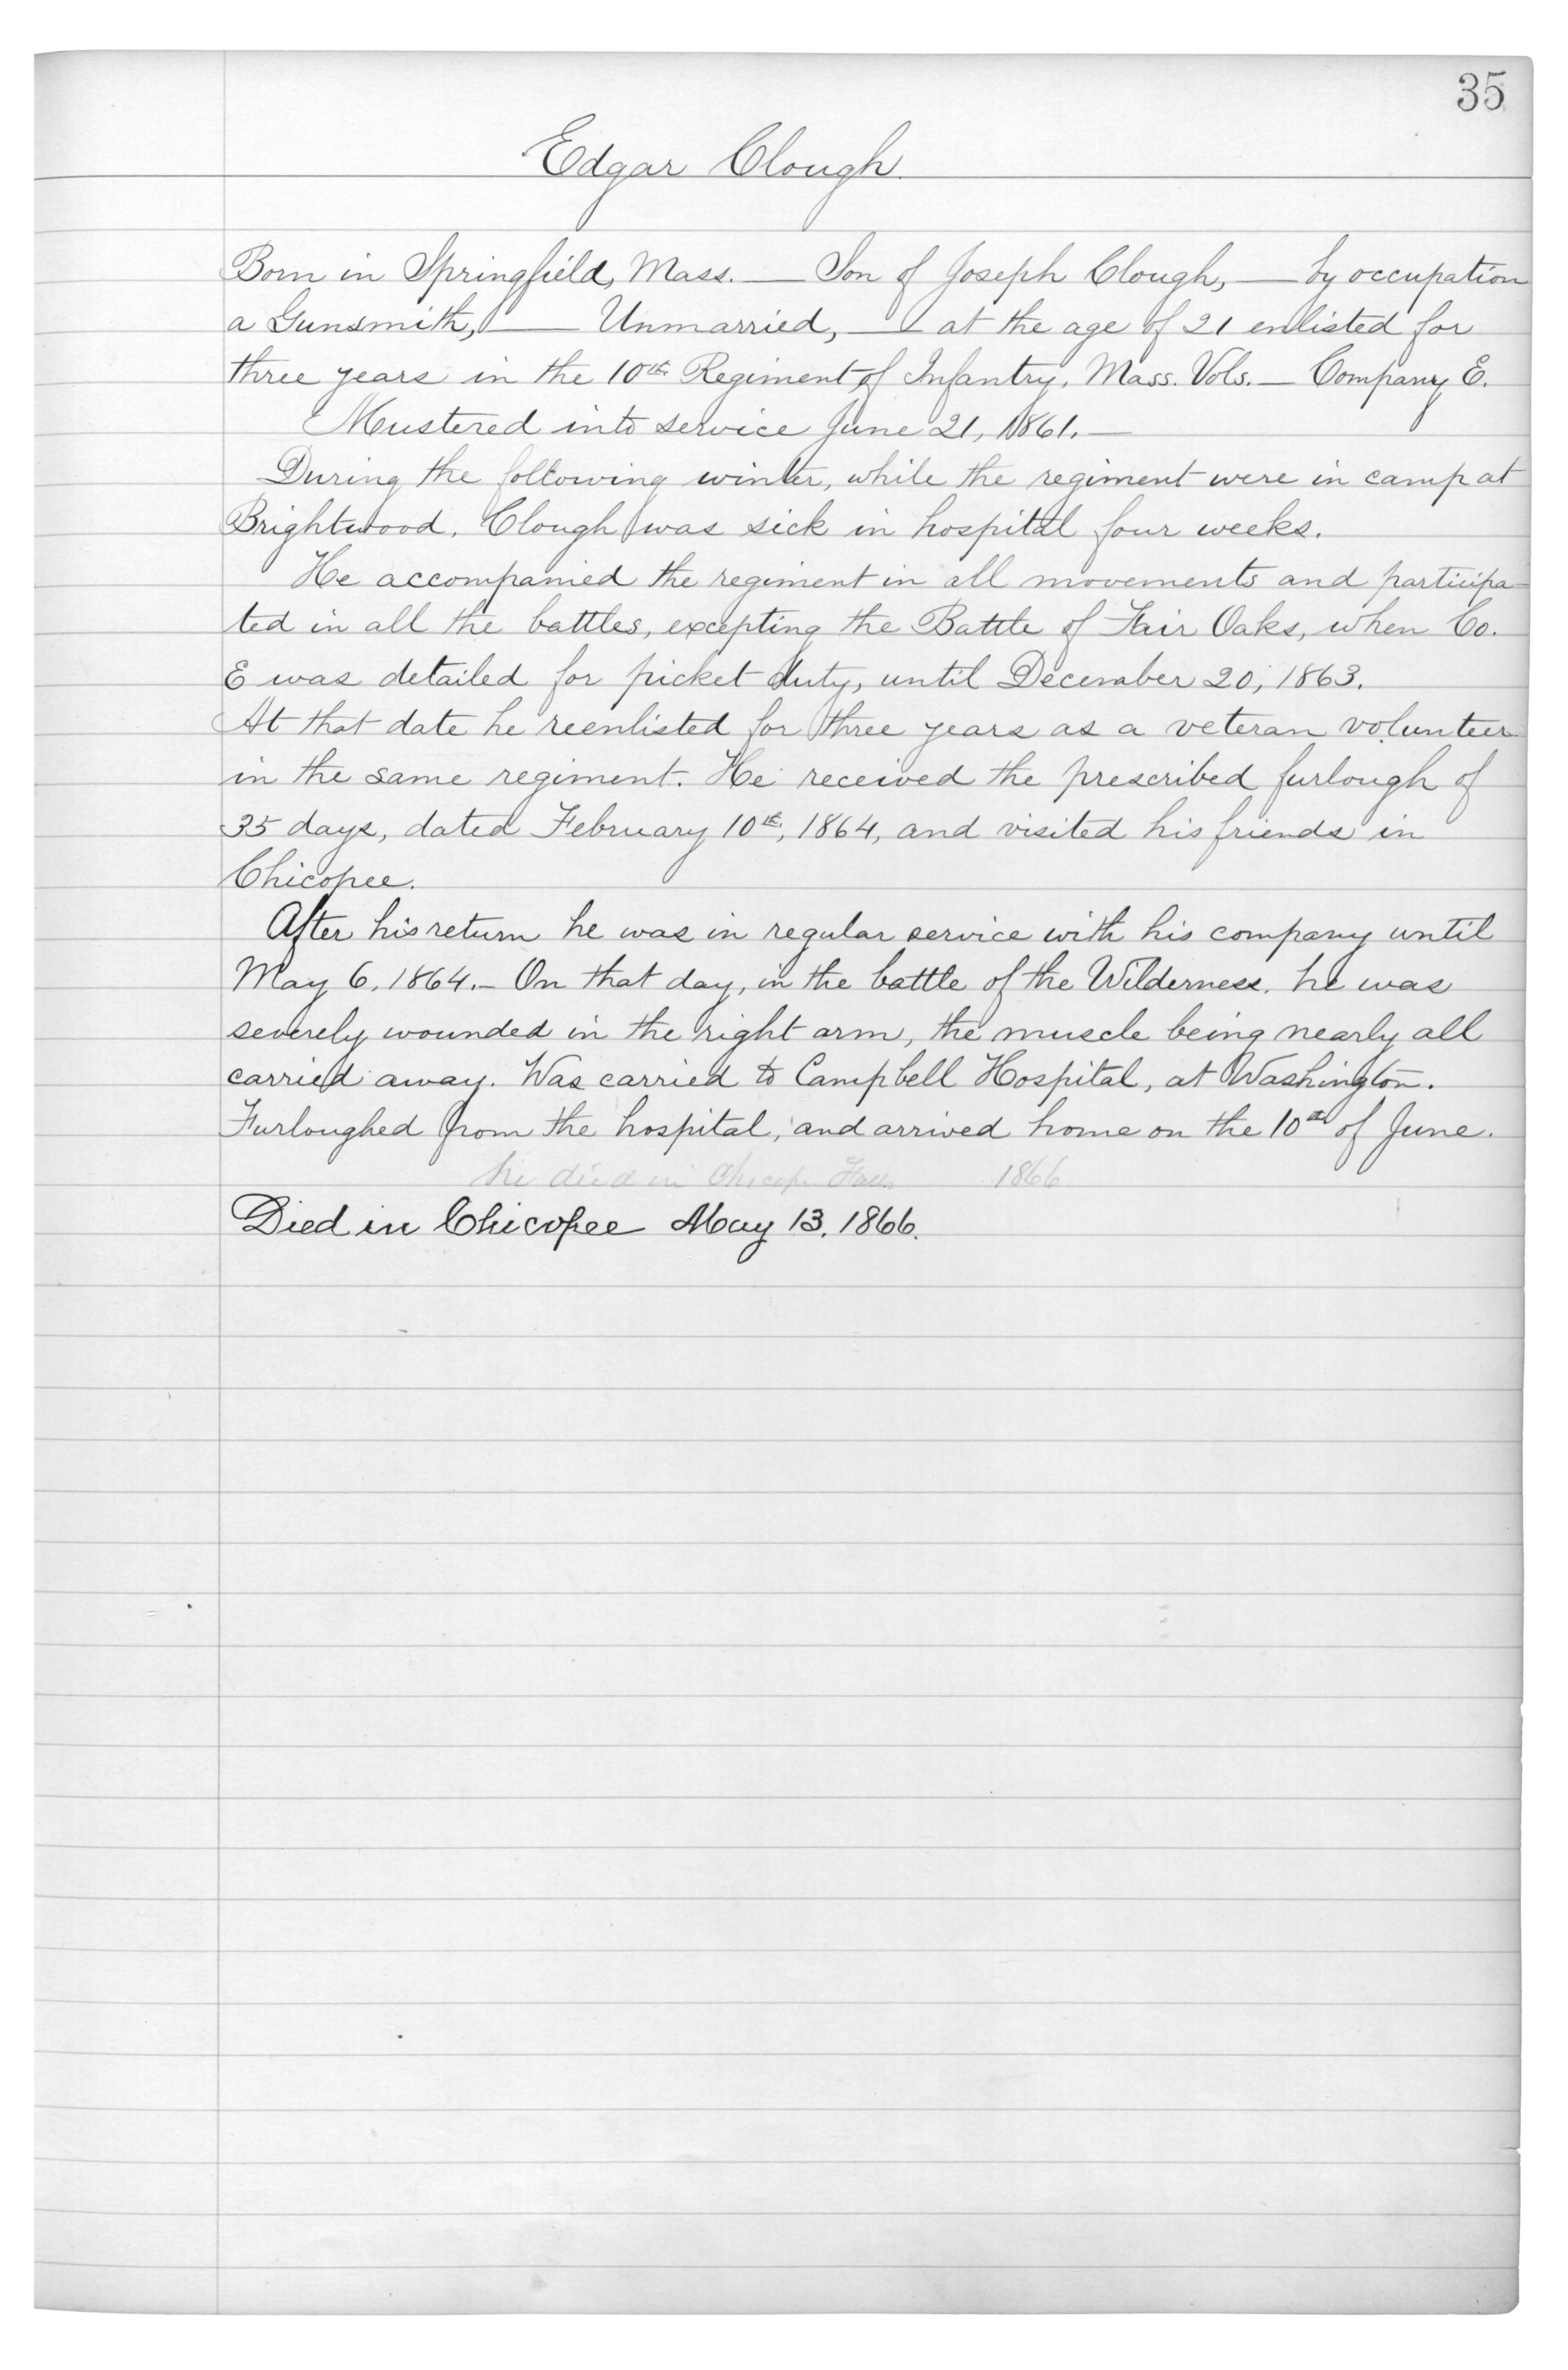 35
Edgar Clough.
Born in Springfield, Mass. — Son of Joseph Clough, — by occupation
a Gunsmith, — Unmarried, — at the age of 21 enlisted for
three years in the 10th Regiment of Infantry, Mass. Vols. — Company E.
Mustered into service June 21, 1861. —
During the following winter, while the regiment were in camp at
Brightwood, Clough was sick in hospital four weeks.
He accompanied the regiment in all movements and participa-
ted in all the battles, excepting the Battle of Fair Oaks, when Co.
E was detailed for picket duty, until December 20, 1863.
At that date he reenlisted for three years as a veteran volunteer
in the same regiment. He received the prescribed furlough of
35 days, dated February 10th, 1864, and visited his friends in
Chicopee.
After his return he was in regular service with his company until
May 6, 1864. – On that day, in the battle of the Wilderness, he was
severely wounded in the right arm, the muscle being nearly all
carried away. Was carried to Campbell Hospital, at Washington.
Furloughed from the hospital, and arrived home on the 10th of June.
he died in 1866
Died in Chicopee May 13, 1866.